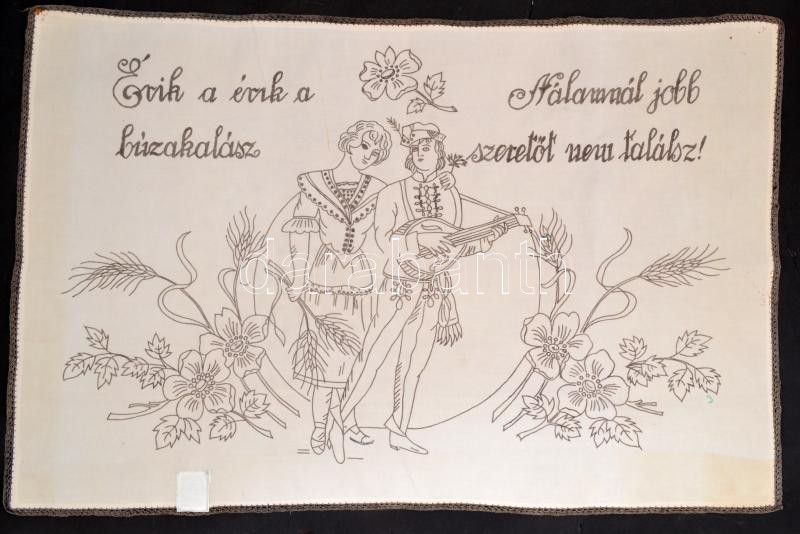 Érik a érik a
búzakalász
Nálamnál jobb
szeretőt nem találsz!
darabanth